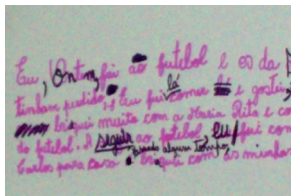 Eu, Ontem, fui ao futebol e os da
tinham perdido, Eu fui comer lá e gostei
brinquei muito com a Maria Rita e co
do futebol. A seguir ao futebol, Eu fui com
Carlos para casa brinquei com as minhas